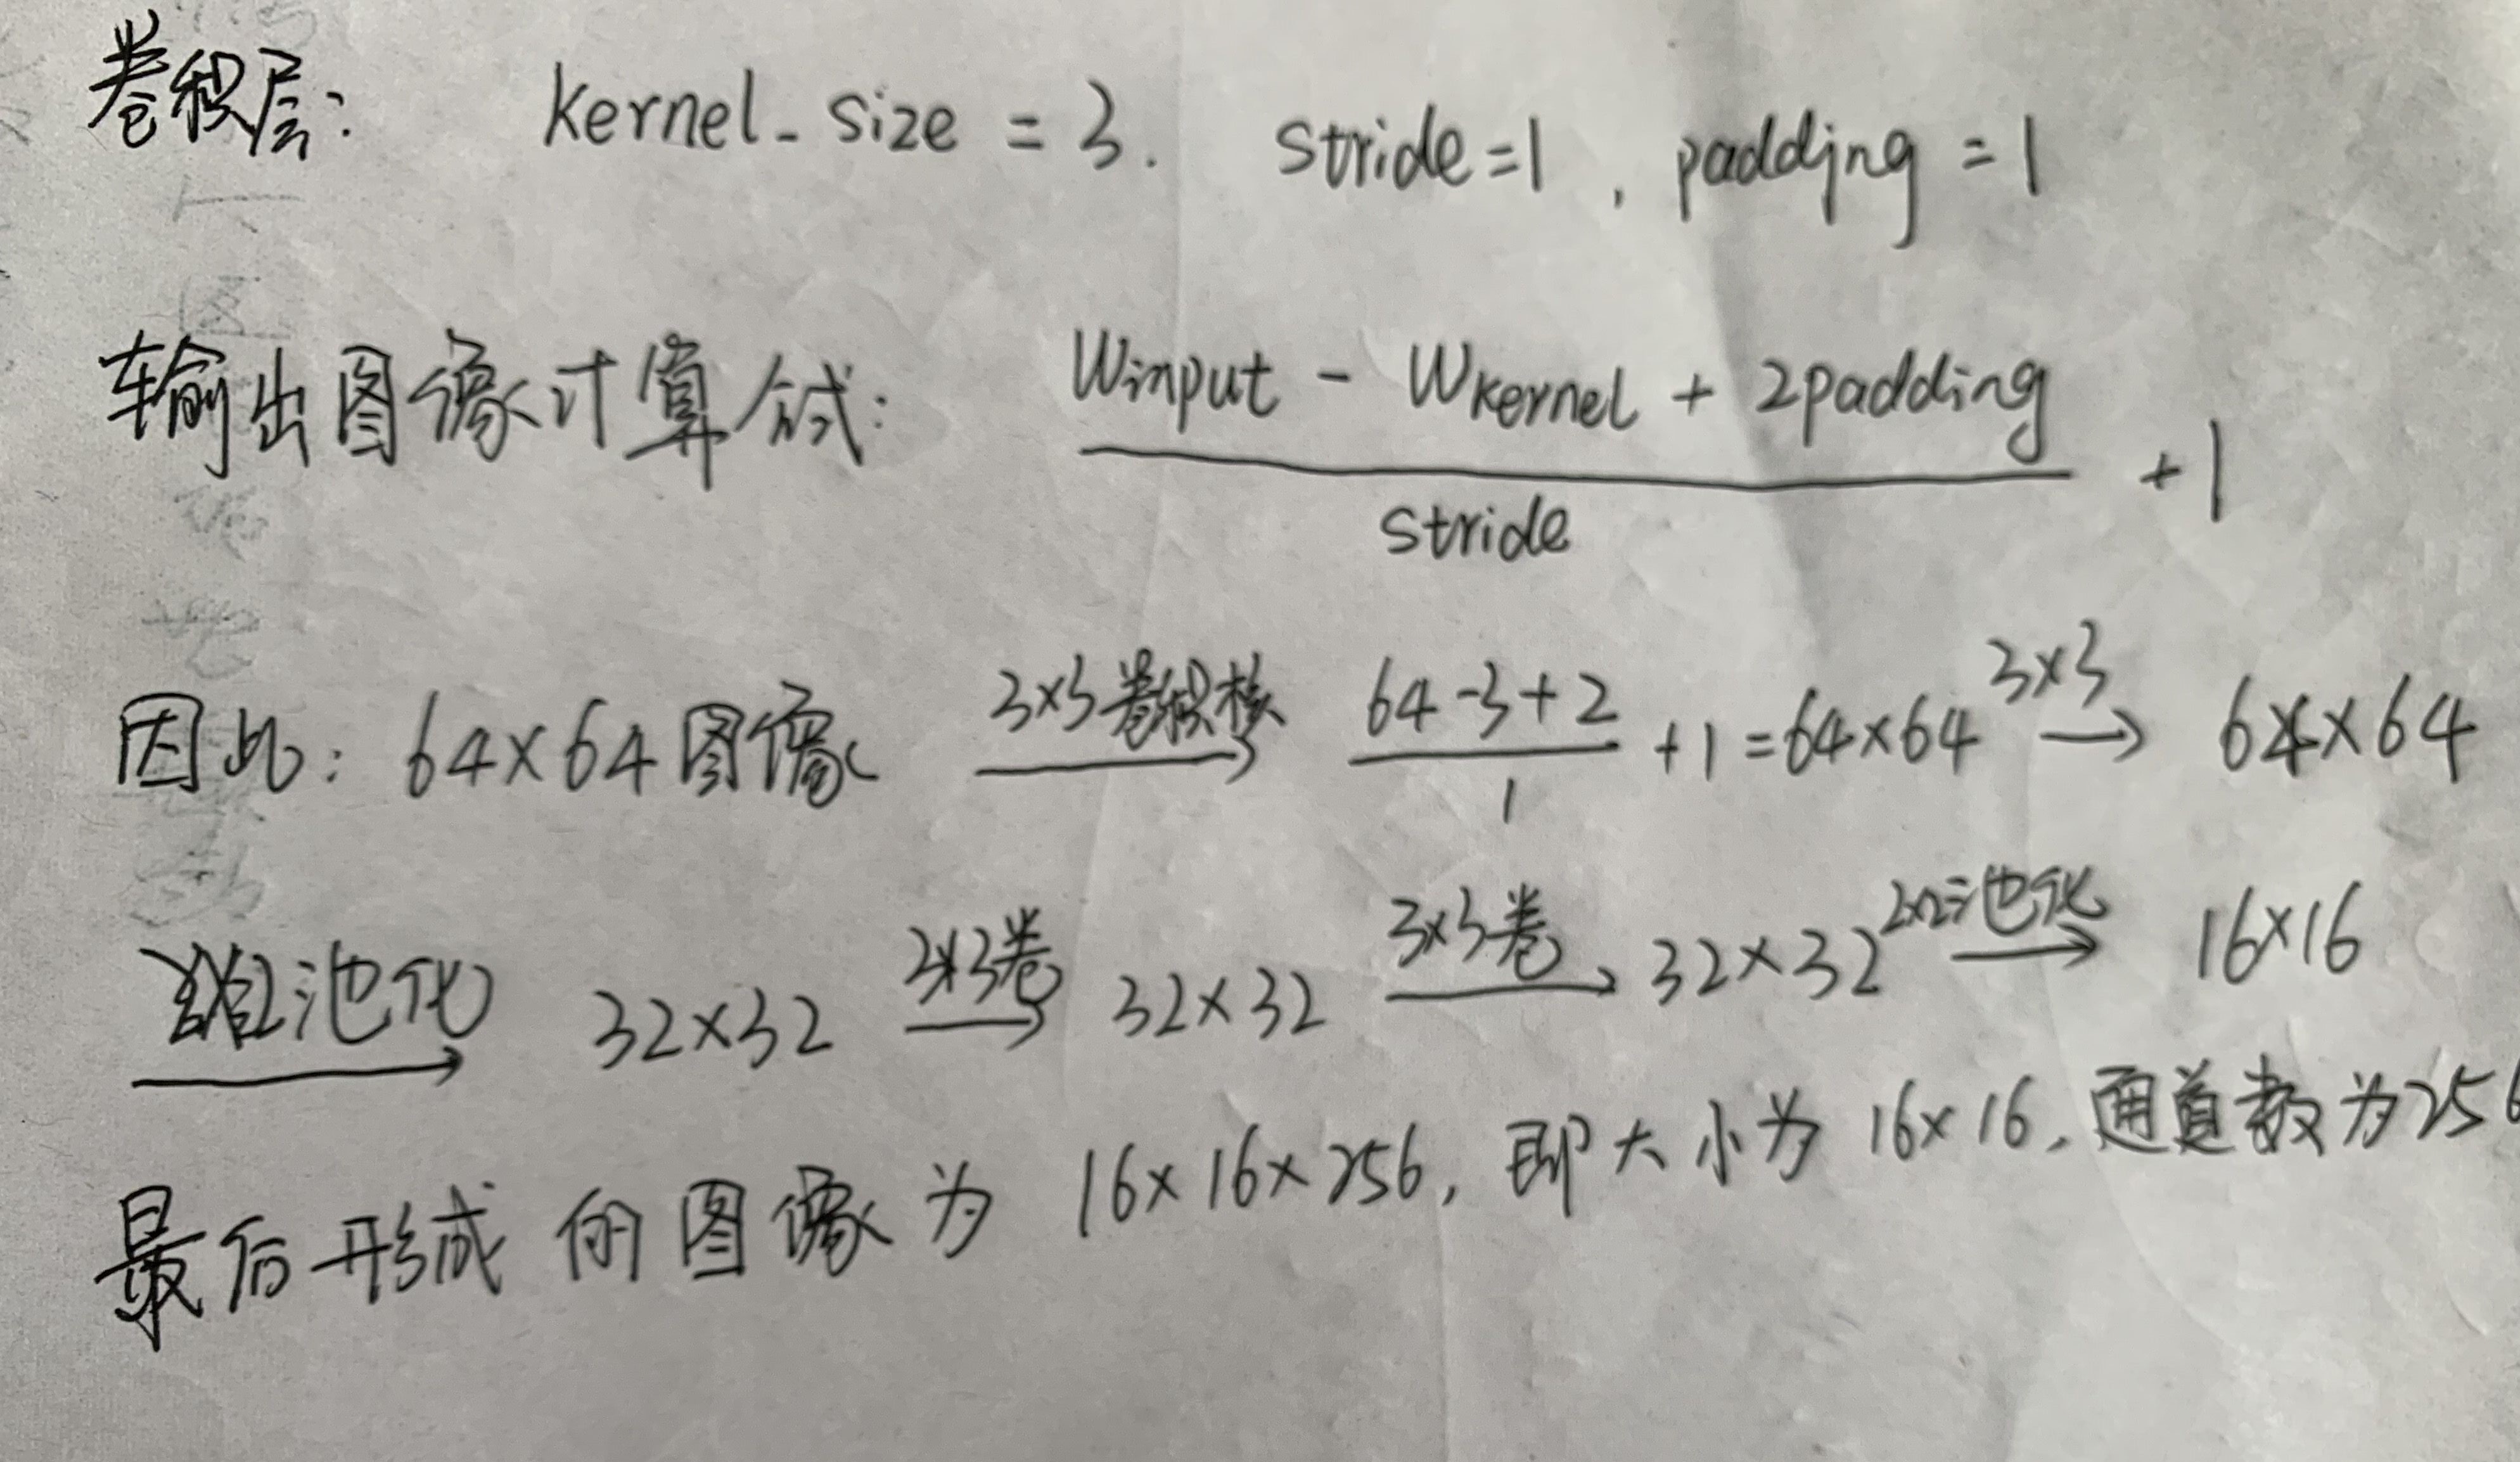 卷积层: kernel_size = 3. stride=1, padding = 1
输出图像计算公式: (Winput - Wkernel + 2padding) / stride + 1
因此: 64×64图像 3×3卷积核 → (64-3+2)/1 + 1 = 64×64 3×3 → 64×64
池化 → 32×32 3×3卷 → 32×32 3×3卷 → 32×32 2×2池化 → 16×16
最后形成的图像为 16×16×256, 即大小为 16×16, 通道数为256